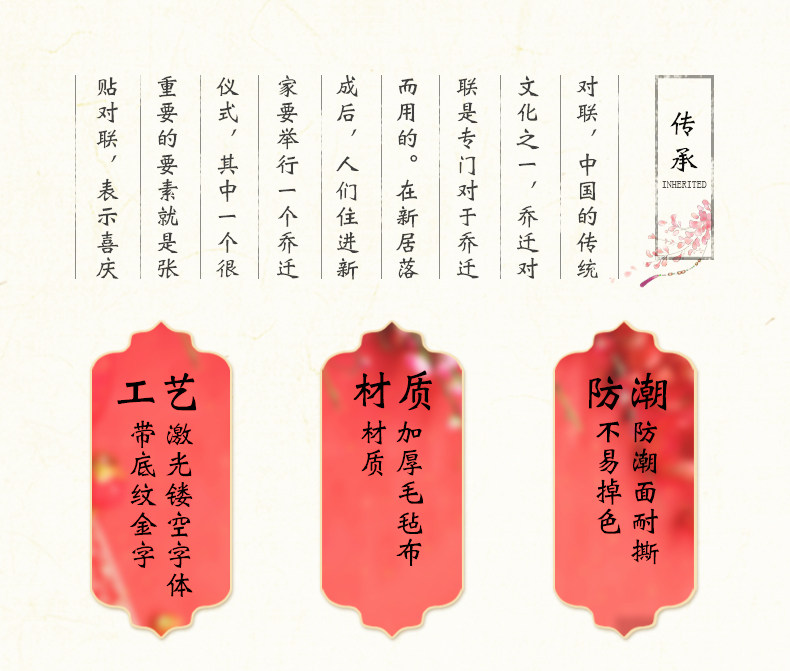 传承
INHERITED
对联，中国的传统
文化之一，乔迁对
联是专门对于乔迁
而用的。在新居落
成后，人们住进新
家要举行一个乔迁
仪式，其中一个很
重要的要素就是张
贴对联，表示喜庆
工艺
激光镂空字体
带底纹金字
材质
加厚毛毡布
材质
防潮
防潮面耐撕
不易掉色